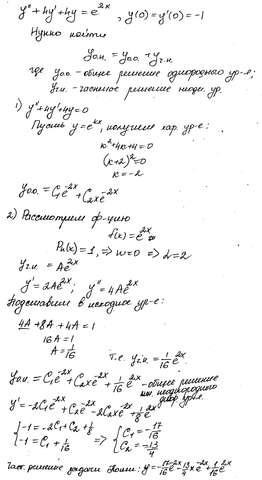 y'' + 4y' + 4y = e^{2x}, y(0) = y'(0) = -1
Нужно найти
y_{о.н.} = y_{о.о.} + y_{ч.н.}
где y_{о.о.} - общее решение однородного ур-я;
y_{ч.н.} - частное решение неодн. ур.
1) y'' + 4y' + 4y = 0
Пусть y = e^{kx}, получаем хар. ур-е:
k² + 4k + 4 = 0
(k+2)² = 0
k = -2
y_{о.о.} = C₁e^{-2x} + C₂xe^{-2x}
2) Рассмотрим ф-цию
f(x) = e^{2x}
P_n(x) = 1, => w = 0 => α = 2
y_{ч.н.} = Ae^{2x}
y' = 2Ae^{2x}; y'' = 4Ae^{2x}
Подставим в исходное ур-е:
4A + 8A + 4A = 1
16A = 1
A = 1/16 т.е. y_{ч.н.} = 1/16 e^{2x}
y_{о.н.} = C₁e^{-2x} + C₂xe^{-2x} + 1/16 e^{2x} - общее решение
неоднородного
диф. ур-я.
y' = -2C₁e^{-2x} + C₂e^{-2x} - 2C₂xe^{-2x} + 1/8 e^{2x}
{ -1 = -2C₁ + C₂ + 1/8
-1 = C₁ + 1/16 => { C₁ = -17/16
C₂ = -13/4
Част. решение задачи Коши: y = -17/16 e^{-2x} - 13/4 x e^{-2x} + 1/16 e^{2x}